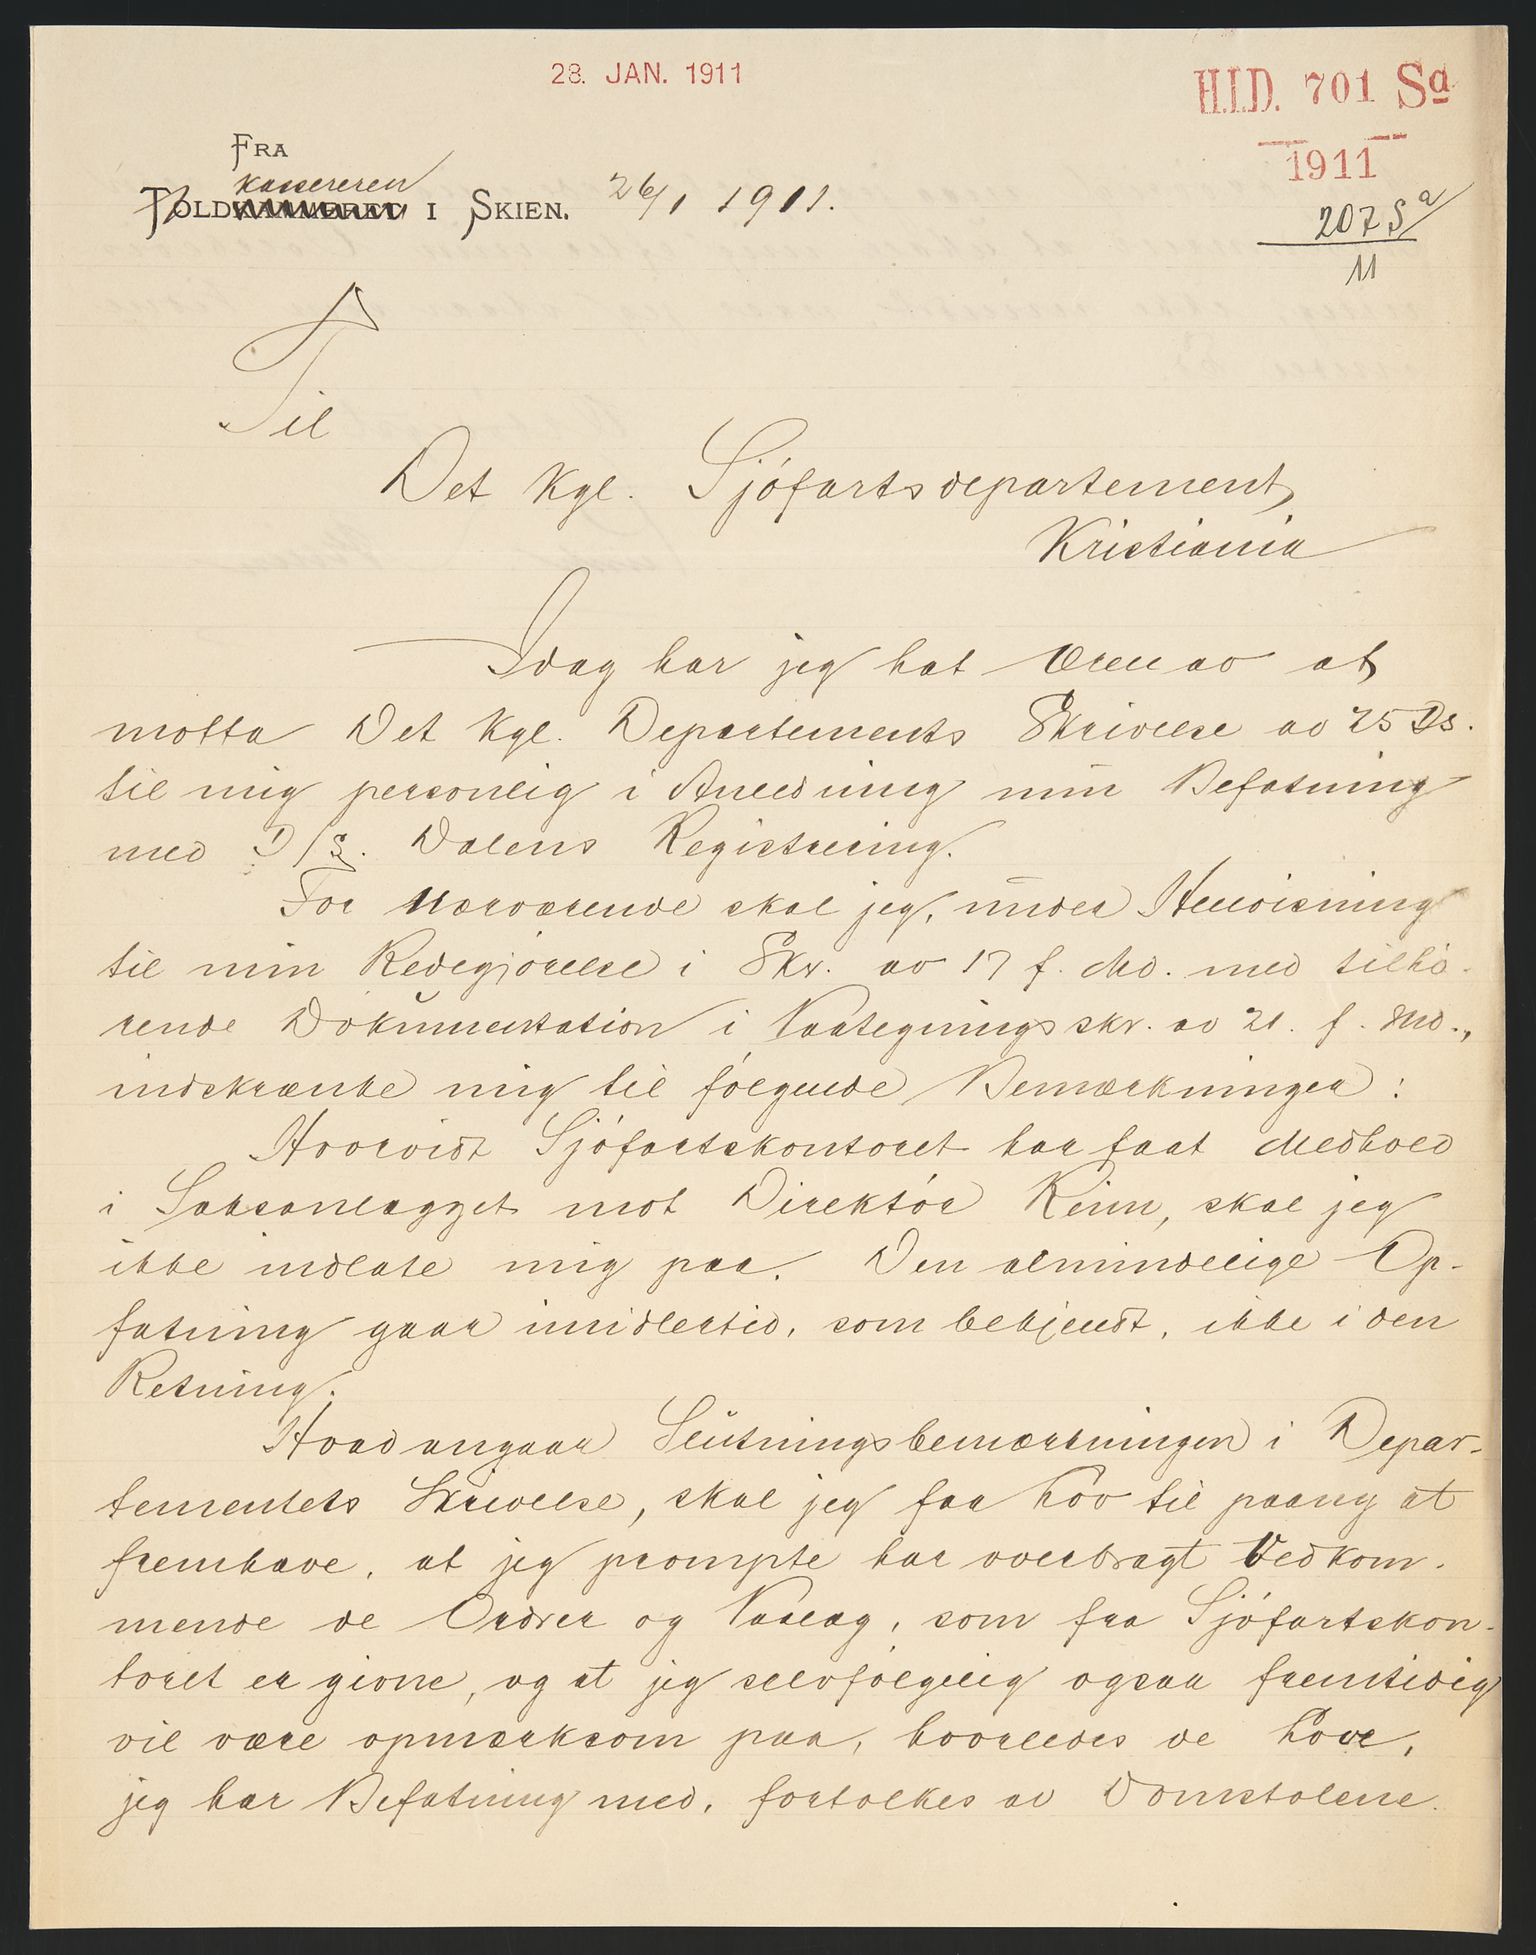 28. JAN. 1911
H.I.D. 701 Sa
1911
207 Sa
11
FRA
kassereren
TOLDKAMMERET I SKIEN. 26/1 1911.
Til
Det Kgl. Sjöfartsdepartement,
Kristiania
Idag har jeg hat Æren av at
motta Det Kgl. Departements Skrivelse av 25 Ds.
til mig personlig i Anledning min Befatning
med D/S. Dalens Registrering.
For Nærværende skal jeg, under Henvisning
til min Redegjörelse i Skr. av 17 f. Md. med tilhö-
rende Dokumentation i Paategningsskr. av 21. f. Md.,
indskrænke mig til fölgende Bemærkninger:
Hvorvidt Sjöfartskontoret har faat Medhold
i Saksanlægget mot Direktör Keim, skal jeg
ikke indlate mig paa. Den almindelige Op-
fatning gaar imidlertid, som bekjendt, ikke i den
Retning.
Hvad angaar Slutningsbemærkningen i Depar-
tementets Skrivelse, skal jeg faa Lov til paany at
fremhæve, at jeg prompte har overbragt Vedkom-
mende de Ordrer og Paalæg, som fra Sjöfartskon-
toret er givne, og at jeg selvfölgelig ogsaa fremtidig
vil være opmærksom paa, hvorledes de Love,
jeg har Befatning med, fortolkes av Domstolene.